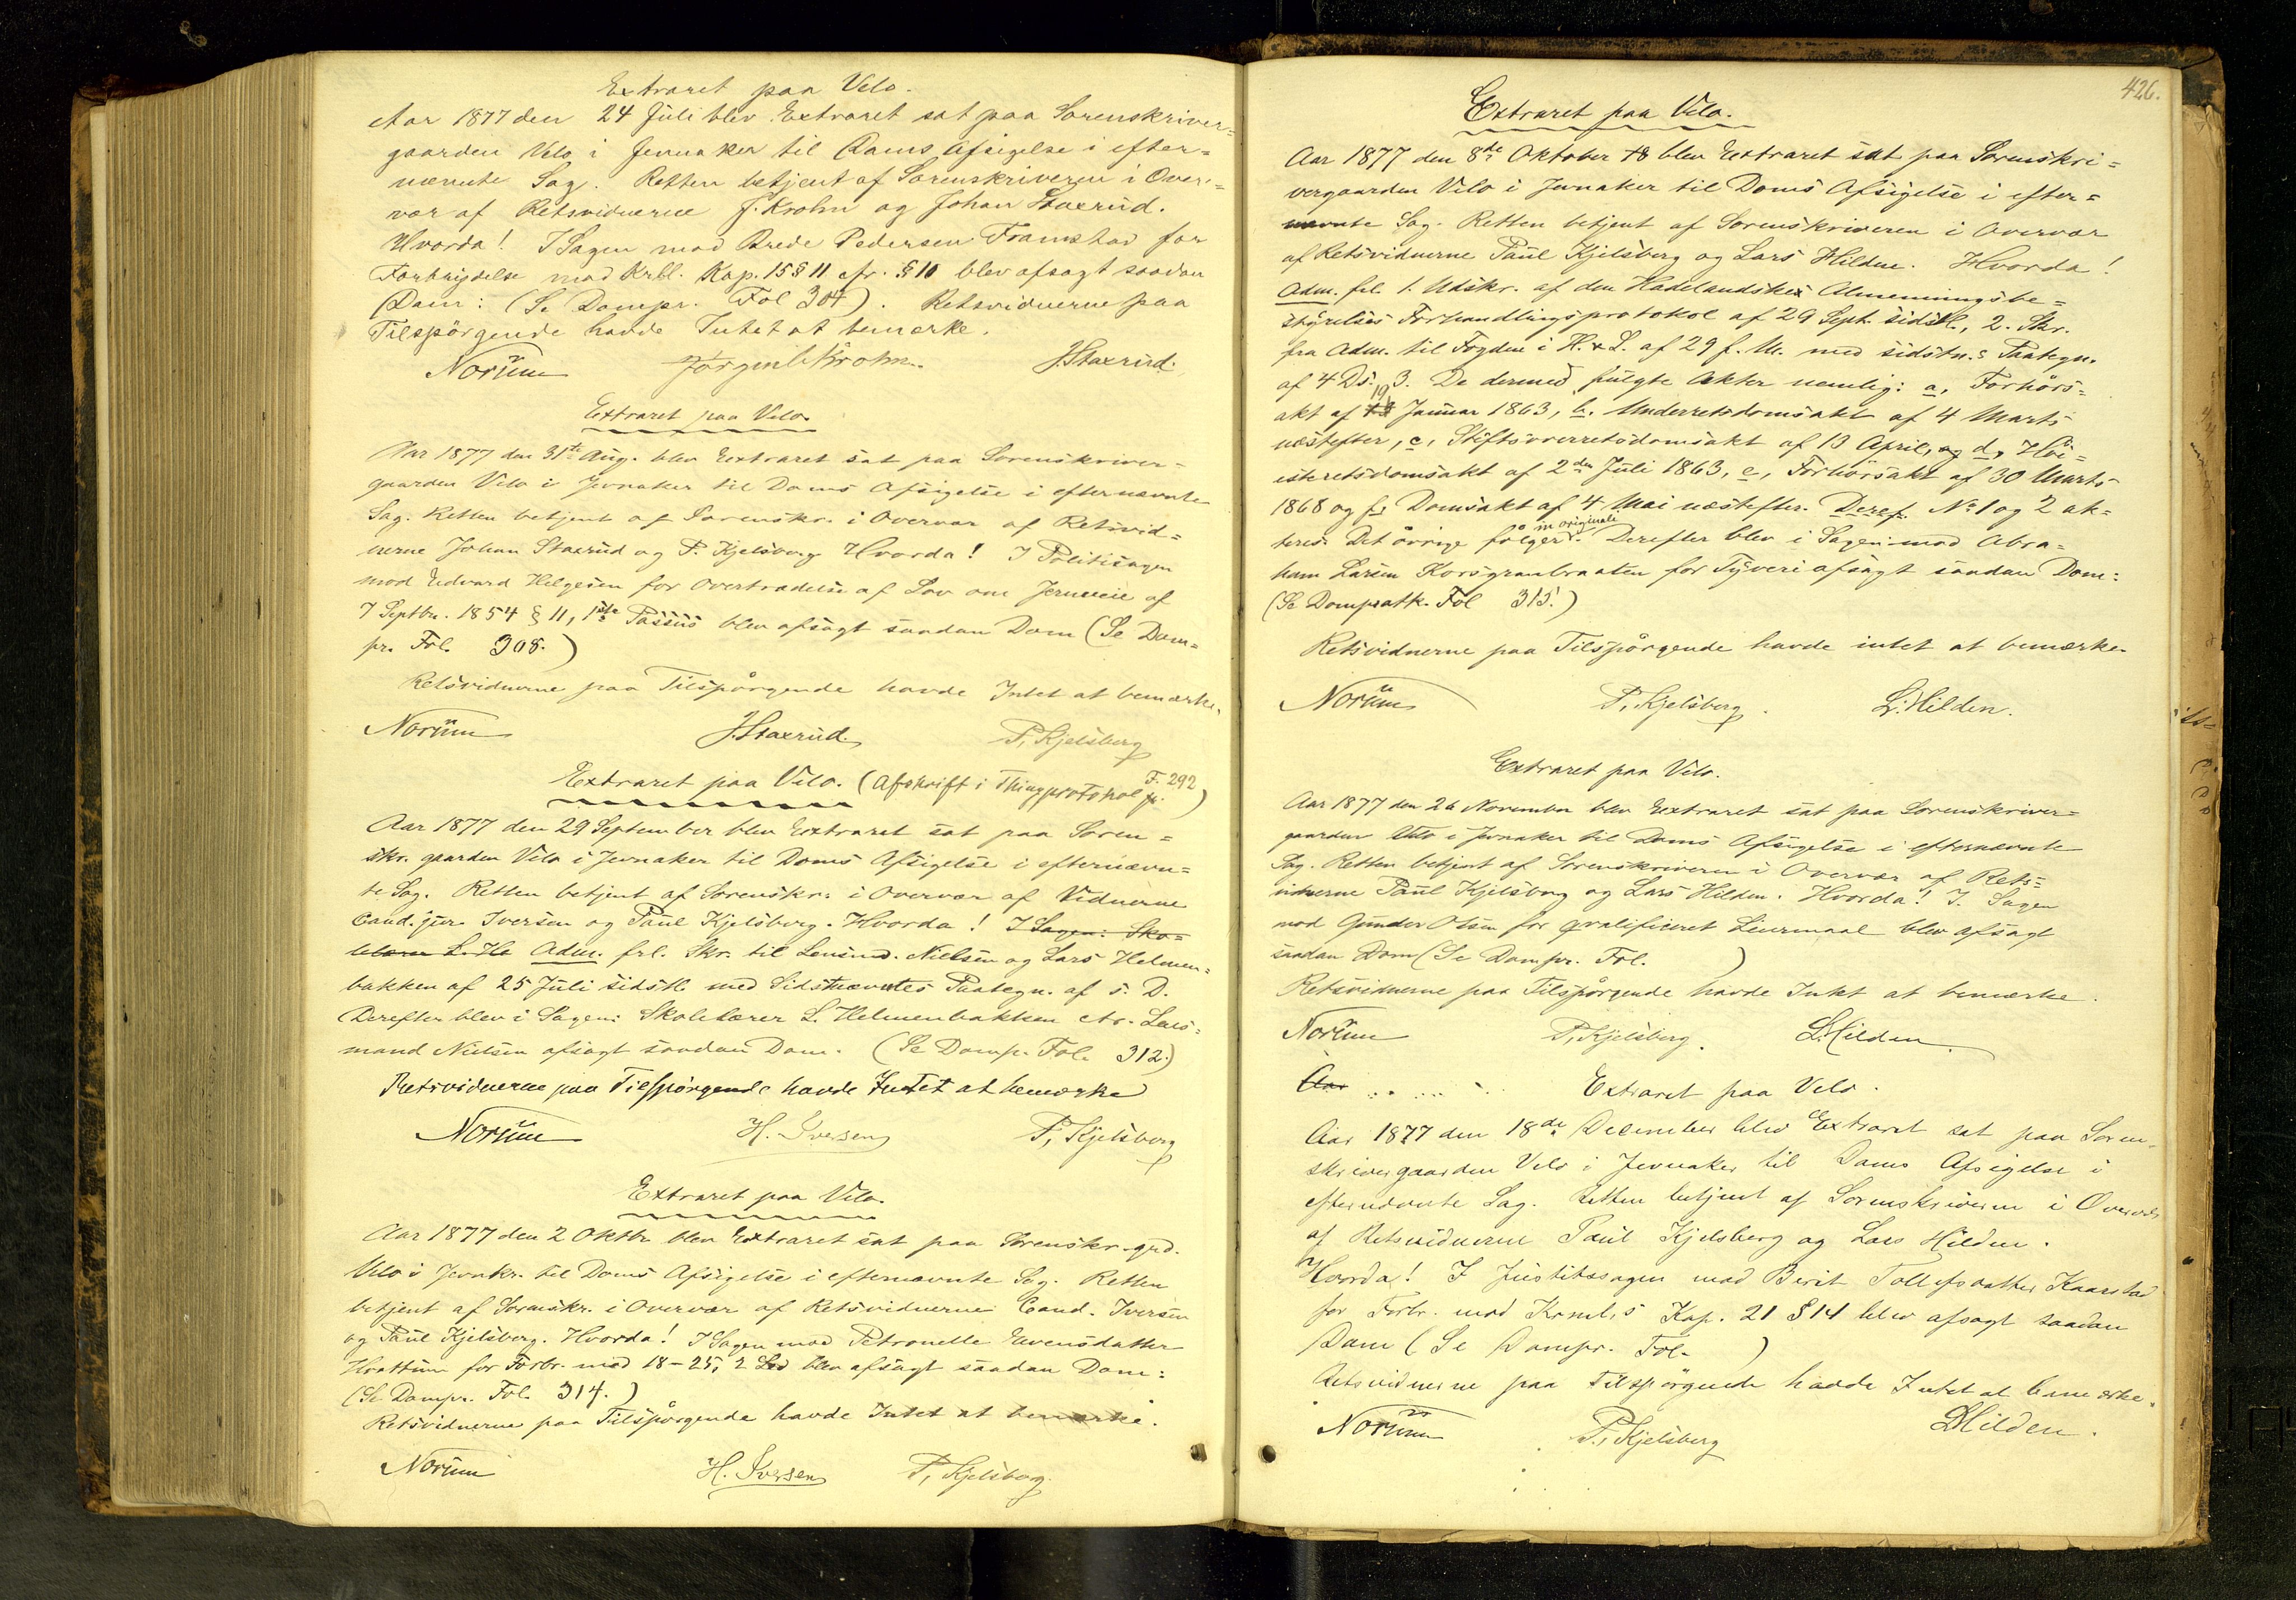 Extraret paa Velo.
Aar 1877 den 24 Juli blev Extraret sat paa Sorenskriver=
gaarden Velo i Jevnaker til Doms Afsigelse i efter=
nævnte Sag. Retten betjent af Sorenskriveren i Over=
vær af Retsvidnerne J. Krohn og Johan Staxrud.
Hvorda! I Sagen mod Brede Pedersen Framstad for
Forbrydelse mod Krbl. Kap. 15 § 11 cfr. § 10 blev afsagt saadan
Dom: (Se Dompr. Fol 304). Retsvidnerne paa
Tilspörgende havde Intet at bemærke.
Norum Jørgen Krohn. J. Staxrud.
Extraret paa Velo.
Aar 1877 den 31te Aug. blev Extraret sat paa Sorenskriver=
gaarden Velo i Jevnaker til Doms Afsigelse i efternævnte
Sag. Retten betjent af Sorenskr. i Overvær af Retsvid=
nerne Johan Staxrud og P. Kjelsberg. Hvorda! I Politisagen
mod Edvard Helgesen for Overtrædelse af Lov om Jernveie af
7 Septbr. 1854 § 11, 1ste Passus blev afsagt saadan Dom (Se Dom=
pr. Fol. 308.)
Retsvidnerne paa Tilspørgende havde Intet at bemærke.
Norum J. Staxrud. P. Kjelsberg
Extraret paa Velo. (Afskrift i Thingprotokol F. 292)
Aar 1877 den 29 September blev Extraret sat paa Soren=
skr. gaarden Velo i Jevnaker til Doms Afsigelse i efternævn=
te Sag. Retten betjent af Sorenskr. i Overvær af Vidnerne
Cand. jur. Iversen og Paul Kjelsberg. Hvorda! I Sagen: Sko=
lelærer L. He Adm. frl. Skr. til Lensmd. Nielsen og Lars Helmen=
bakken af 25 Juli sidstl. med Sidstnævntes Paategn. af s. D.
Derefter blev i Sagen: Skolelærer L. Helmenbakken ctr. Lens=
mand Nielsen afsagt saadan Dom. (Se Dompr. Fol. 312.)
Retsvidnerne paa Tilspørgende havde Intet at bemærke
Norum H. Iversen P. Kjelsberg
Extraret paa Velo.
Aar 1877 den 2 Oktbr. blev Extraret sat paa Sorenskr. grd.
Velo i Jevnkr. til Doms Afsigelse i efternævnte Sag. Retten
betjent af Sorenskr. i Overvær af Retsvidnerne Cand. Iversen
og Paul Kjelsberg. Hvorda! I Sagen mod Petronelle Evensdatter
for Forbr. mod 18-25, 2 Led blev afsagt saadan Dom:
(Se Dompr. Fol. 314.)
Retsvidnerne paa Tilspørgende havde Intet at bemærke.
Norum H. Iversen P. Kjelsberg.
426.
Extraret paa Velo.
Aar 1877 den 8de Oktober 78 blev Extraret sat paa Sorenskri=
vergaarden Velo i Jevnaker til Doms Afsigelse i efter=
nævnte Sag. Retten betjent af Sorenskriveren i Overvær
af Retsvidnerne Paul Kjelsberg og Lars Hilden. Hvorda!
Adm. frl. 1. Udskr. af den Hadelandske Almenningsbe=
styrelses Forhandlingsprotokol af 29 Sept. sidstl., 2. Skr.
fra Adm. til Fogden i H. & L. af 29 f. M. med sidstn.s Paategn.
af 4 Ds. 3. De dermed fulgte Akter nemlig: a, Forhörs=
akt af 19 Januar 1863, b. Underretsdomsakt af 4 Marts
næstefter, c, Stiftsoverretsdomsakt af 13 April, og d, Höi=
esteretsdomsakt af 2den Juli 1863, e, Forhörsakt af 30 Marts
1868 og f. Domsakt af 4 Mai næstefter. Deraf No 1 og 2 ak=
teres. Det övrige fölger in originale. Derefter blev i Sagen mod Abra=
ham Larsen Korsgranbraaten for Tyveri afsagt saadan Dom:
(Se Domprotk. Fol 315.)
Retsvidnerne paa Tilspørgende havde intet at bemærke.
Norum P. Kjelsberg. L. Hilden.
Extraret paa Velo.
Aar 1877 den 26 November blev Extraret sat paa Sorenskriver=
gaarden Velo i Jevnaker til Doms Afsigelse i efternævnte
Sag. Retten betjent af Sorenskriveren i Overvær af Rets=
vidnerne Paul Kjelsberg og Lars Hilden. Hvorda! I Sagen
mod Gunder Olsen for qvalificeret Leiermaal blev afsagt
saadan Dom (Se Dompr. Fol. )
Retsvidnerne paa Tilspørgende havde Intet at bemærke.
Norum P. Kjelsberg. L. Hilden
Aar Extraret paa Velo.
Aar 1877 den 18de December blev Extraret sat paa Soren=
skrivergaarden Velo i Jevnaker til Doms Afsigelse i
efternævnte Sag. Retten betjent af Sorenskriveren i Overvær
af Retsvidnerne Paul Kjelsberg og Lars Hilden.
Hvorda! I Justitssagen mod Berit Tollefsdatter Kaarstad
for Forbr. mod Krmls Kap. 21 § 14 blev afsagt saadan
Dom (Se Dompr. Fol. )
Retsvidnerne paa Tilspörgende havde Intet at bemærke.
Norum P. Kjelsberg L. Hilden.